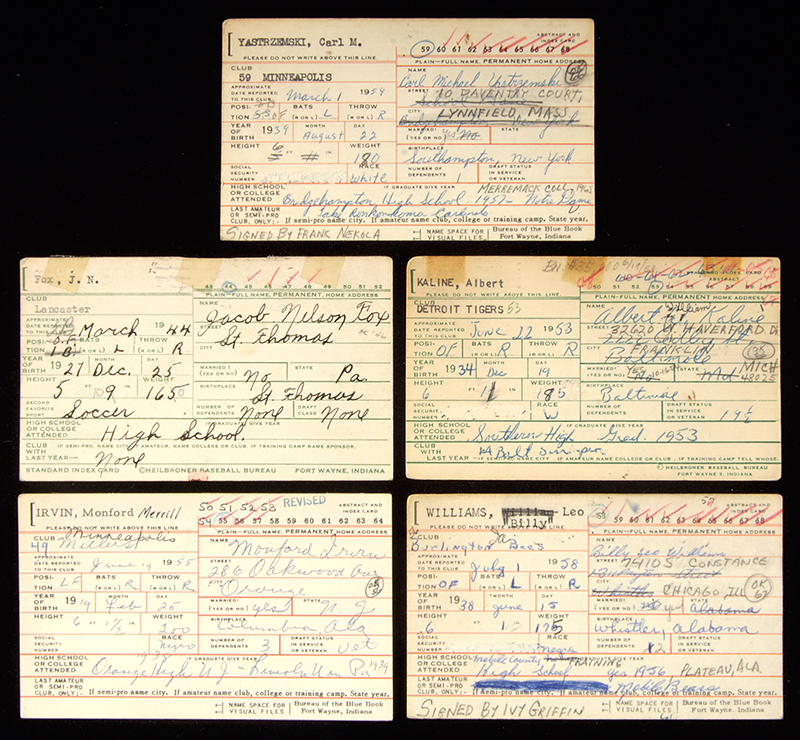 YASTRZEMSKI, Carl M.
ABSTRACT AND
INDEX CARD
59 60 61 62 63 64 65 66 67 68
PLEASE DO NOT WRITE ABOVE THIS LINE.
PLAIN—FULL NAME, PERMANENT HOME ADDRESS
CLUB
59 MINNEAPOLIS
NAME
Carl Michael Yastrzemski
OK 60
APPROXIMATE
DATE REPORTED
TO THIS CLUB
March 1 1959
STREET
10 DAVENTRY COURT,
POSI-
TION
SS OF
BATS
(R OR L) L
THROW
(R OR L) R
CITY
LYNNFIELD, MASS
Bridgehampton, New York
YEAR
OF BIRTH
1939
MONTH
August
DAY
22
MARRIED?
(YES OR NO)
Yes No
STATE
HEIGHT
6 FT IN
WEIGHT
180
BIRTHPLACE
Southampton, New York
SOCIAL
SECURITY
NUMBER
RACE
White
NUMBER OF
DEPENDENTS
1
DRAFT STATUS
IN SERVICE
OR VETERAN
HIGH SCHOOL
OR COLLEGE
ATTENDED
IF GRADUATE GIVE YEAR
MERREMACK COLL.
Bridgehampton High School 1957 - Notre Dame
LAST AMATEUR
OR SEMI-PRO
CLUB, ONLY:-
Lake Ronkonkoma Cardinals
If semi-pro name city. If amateur name club, college or training camp. State year.
SIGNED BY FRANK NEKOLA
NAME SPACE FOR
VISUAL FILES
Bureau of the Blue Book
Fort Wayne, Indiana
Fox, J. N.
43 44 45 46 47 48 49 50 51 52
PLAIN—FULL NAME, PERMANENT HOME ADDRESS
CLUB
Lancaster
NAME
Jacob Nelson Fox
APPROXIMATE
DATE REPORTED
TO THIS CLUB
March 1944
STREET
CITY
St. Thomas
POSI-
TION
OF
1B
BATS
(R OR L) L
THROW
(R OR L) R
YEAR
OF BIRTH
1927
MONTH
Dec.
DAY
25
MARRIED?
(YES OR NO)
No
STATE
Pa.
HEIGHT
5 FT 09 IN
WEIGHT
165
BIRTHPLACE
St. Thomas
SECOND
FAVORITE
SPORT
Soccer
NUMBER OF
DEPENDENTS
None
DRAFT
CLASS
None
HIGH SCHOOL
OR COLLEGE
ATTENDED
IF GRADUATE GIVE YEAR
High School.
CLUB
WITH
LAST YEAR—
IF SEMI-PRO, NAME CITY. IF AMATEUR, NAME COLLEGE OR CLUB. IF TRAINING CAMP NAME SPONSOR.
None
STANDARD INDEX CARD
©HEILBRONER BASEBALL BUREAU
FORT WAYNE, INDIANA
KALINE, Albert
PLEASE DO NOT WRITE ABOVE THIS LINE
PLAIN—FULL NAME, PERMANENT HOME ADDRESS
CLUB
DETROIT TIGERS 53
NAME
Albert William Kaline
APPROXIMATE
DATE REPORTED
TO THIS CLUB
June 22 1953
STREET
32620 W. HAVERFORD
CITY
FRANKLIN
Baltimore
POSI-
TION
OF
BATS
(R OR L) R
THROW
(R OR L) R
YEAR
OF BIRTH
1934
MONTH
Dec
DAY
19
MARRIED?
(YES OR NO)
YES
No
STATE
Md
MICH
48025
HEIGHT
6 FT 1 IN
WEIGHT
185
BIRTHPLACE
Baltimore
SOCIAL
SECURITY
NUMBER
RACE
W
NUMBER OF
DEPENDENTS
DRAFT STATUS
IN SERVICE
OR VETERAN
HIGH SCHOOL
OR COLLEGE
ATTENDED
IF GRADUATE GIVE YEAR
Southern High Grad. 1953
CLUB
WITH
LAST YEAR—
©HEILBRONER BASEBALL BUREAU
FORT WAYNE 2, INDIANA
IRVIN, Monford Merrill
50 51 52 53
REVISED
ABSTRACT AND
INDEX CARD
54 55 56 57 58 59 60 61 62 63 64
PLEASE DO NOT WRITE ABOVE THIS LINE.
PLAIN—FULL NAME, PERMANENT HOME ADDRESS
CLUB
Minneapolis
49 Millers
NAME
Monford Irvin
APPROXIMATE
DATE REPORTED
TO THIS CLUB
June 1955
STREET
286 Oakwood Ave
POSI-
TION
LF
BATS
(R OR L) R
THROW
(R OR L) R
CITY
Orange
YEAR
OF BIRTH
1919
MONTH
Feb
DAY
25
MARRIED?
(YES OR NO)
yes
STATE
N. J.
HEIGHT
6 FT 1½ IN
WEIGHT
200
BIRTHPLACE
Columbia Ala
SOCIAL
SECURITY
NUMBER
RACE
Negro
NUMBER OF
DEPENDENTS
3
DRAFT STATUS
IN SERVICE
OR VETERAN
Vet
HIGH SCHOOL
OR COLLEGE
ATTENDED
IF GRADUATE GIVE YEAR
Orange High N.J. - Lincoln Un Pa 1939
LAST AMATEUR
OR SEMI-PRO
CLUB, ONLY:-
If semi-pro name city. If amateur name club, college or training camp. State year.
NAME SPACE FOR
VISUAL FILES
Bureau of the Blue Book
Fort Wayne, Indiana
WILLIAMS, William Leo
"Billy"
ABSTRACT AND
INDEX CARD
58 59 60 61 62 63 64 65 66 67
PLEASE DO NOT WRITE ABOVE THIS LINE
PLAIN—FULL NAME, PERMANENT HOME ADDRESS
CLUB
Burlington Bees
NAME
Billy Leo Williams
APPROXIMATE
DATE REPORTED
TO THIS CLUB
July 1 1958
STREET
7410 S CONSTANCE
POSI-
TION
OF
BATS
(R OR L) L
THROW
(R OR L) R
CITY
Whistler
CHICAGO ILL
YEAR
OF BIRTH
1938
MONTH
June
DAY
15
MARRIED?
(YES OR NO)
STATE
Alabama
HEIGHT
6 FT 1 IN
WEIGHT
175
BIRTHPLACE
Whistler, Alabama
SOCIAL
SECURITY
NUMBER
RACE
Negro
NUMBER OF
DEPENDENTS
2
DRAFT STATUS
IN SERVICE
OR VETERAN
HIGH SCHOOL
OR COLLEGE
ATTENDED
Mobile County TRAINING
High School Yes 1956 PLATEAU, ALA.
LAST AMATEUR
OR SEMI-PRO
CLUB, ONLY:-
If semi-pro name city. If amateur name club, college or training camp. State year.
SIGNED BY IVY GRIFFIN
NAME SPACE FOR
VISUAL FILES
Bureau of the Blue Book
Fort Wayne, Indiana